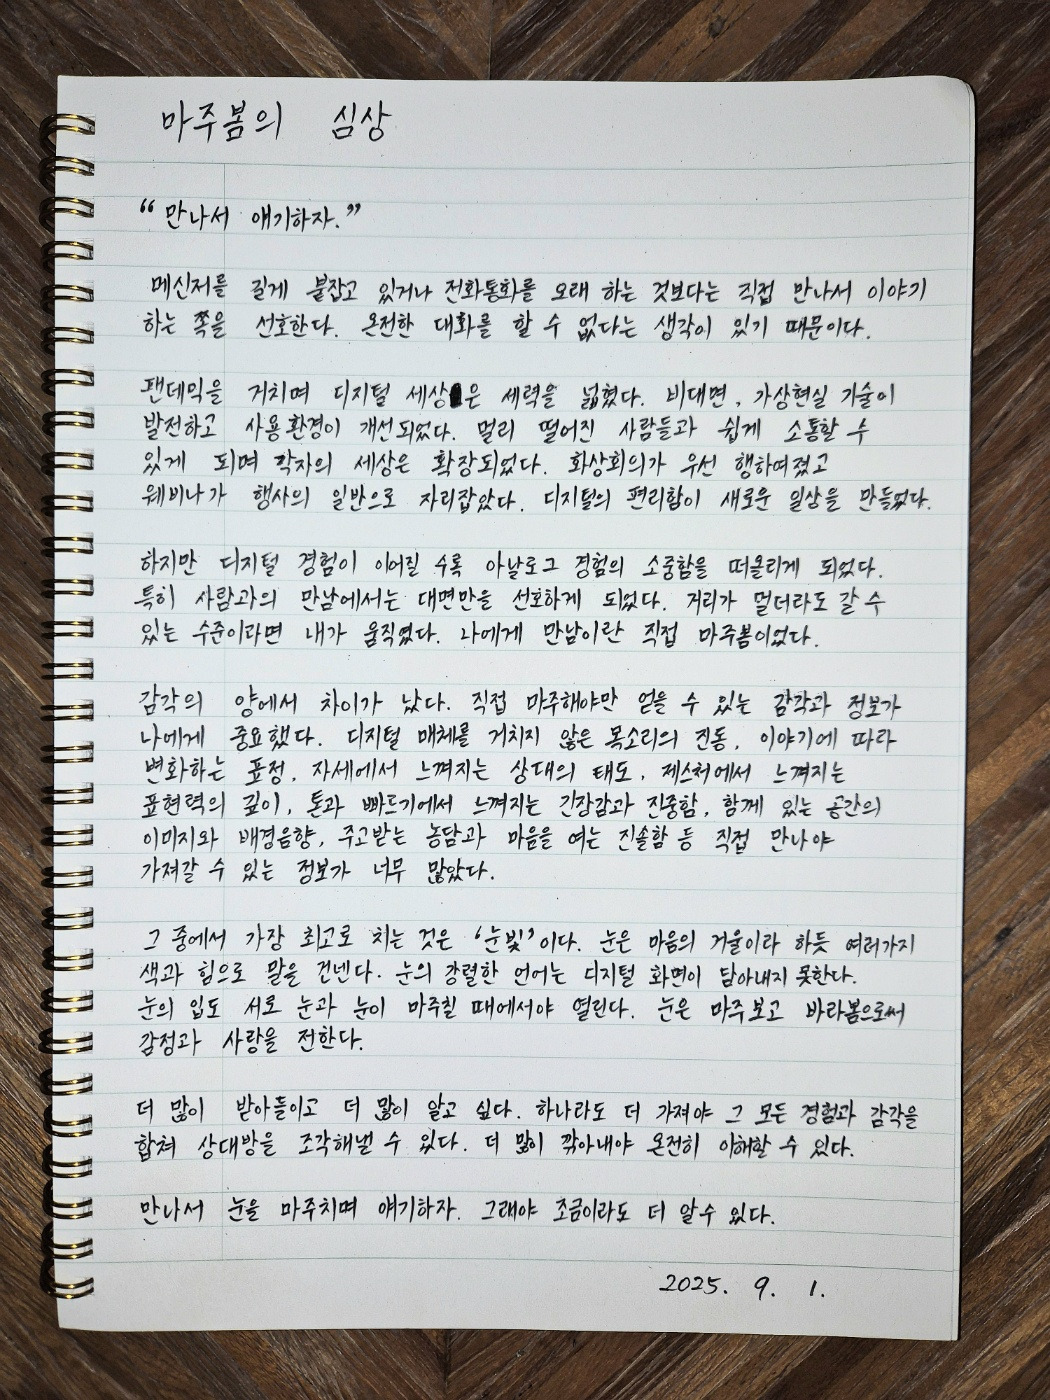 마주봄의 심상
“만나서 얘기하자.”
메신저를 길게 붙잡고 있거나 전화통화를 오래 하는 것보다는 직접 만나서 이야기
하는 쪽을 선호한다. 온전한 대화를 할 수 없다는 생각이 있기 때문이다.
팬데믹을 거치며 디지털 세상은 세력을 넓혔다. 비대면, 가상현실 기술이
발전하고 사용환경이 개선되었다. 멀리 떨어진 사람들과 쉽게 소통할 수
있게 되며 각자의 세상은 확장되었다. 화상회의가 우선 행하여졌고
웨비나가 행사의 일반으로 자리잡았다. 디지털의 편리함이 새로운 일상을 만들었다.
하지만 디지털 경험이 이어질 수록 아날로그 경험의 소중함을 떠올리게 되었다.
특히 사람과의 만남에서는 대면만을 선호하게 되었다. 거리가 멀더라도 갈 수
있는 수준이라면 내가 움직였다. 나에게 만남이란 직접 마주봄이었다.
감각의 양에서 차이가 났다. 직접 마주해야만 얻을 수 있는 감각과 정보가
나에게 중요했다. 디지털 매체를 거치지 않은 목소리의 진동, 이야기에 따라
변화하는 표정, 자세에서 느껴지는 상대의 태도, 제스처에서 느껴지는
표현력의 깊이, 톤과 빠르기에서 느껴지는 긴장감과 진중함, 함께 있는 공간의
이미지와 배경음향, 주고받는 농담과 마음을 여는 진솔함 등 직접 만나야
가져갈 수 있는 정보가 너무 많았다.
그 중에서 가장 최고로 치는 것은 ‘눈빛’이다. 눈은 마음의 거울이라 하듯 여러가지
색과 힘으로 말을 건넨다. 눈의 강렬한 언어는 디지털 화면이 담아내지 못한다.
눈의 입도 서로 눈과 눈이 마주칠 때에서야 열린다. 눈은 마주보고 바라봄으로써
감정과 사랑을 전한다.
더 많이 받아들이고 더 많이 알고 싶다. 하나라도 더 가져야 그 모든 경험과 감각을
합쳐 상대방을 조각해낼 수 있다. 더 많이 깎아내야 온전히 이해할 수 있다.
만나서 눈을 마주치며 얘기하자. 그래야 조금이라도 더 알 수 있다.
2025. 9. 1.